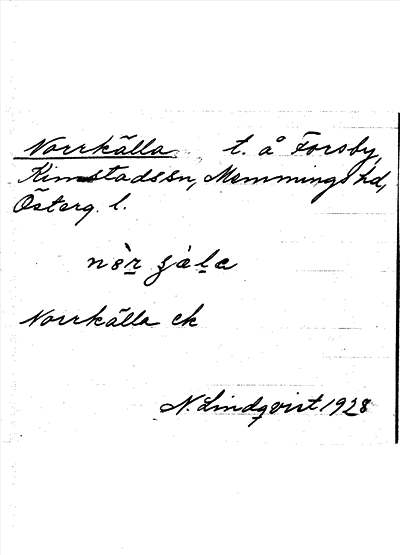 Norrkälla t. å Forsby,
Kimstadssn, Memmings hd,
Österg. l.
nè̱r ʒàḻa
Norrkälla ek
N. Lindqvist 1928